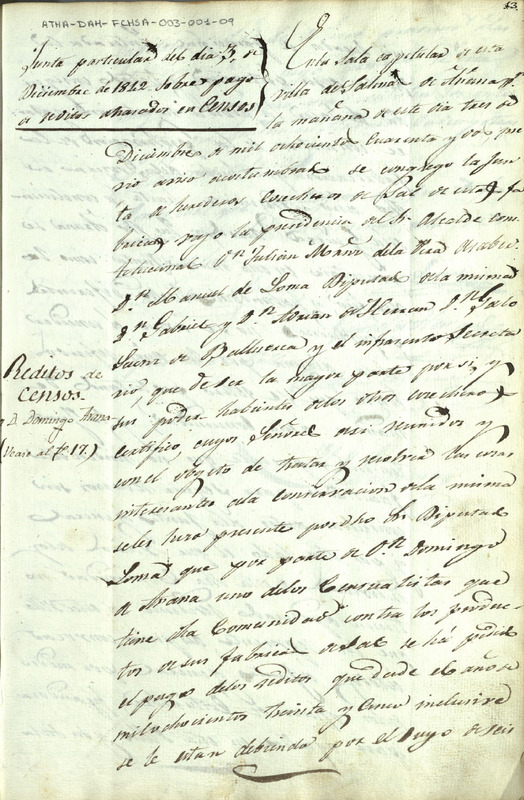 13.
ATHA-DAH-FCHSA-003-001-09
Junta particular del dia 3 de
Diciembre de 1842 sobre pago
a reditos atrasados en Censos
En la Sala capitular de esta
villa de Salinas de Añana p.r
la mañana de este dia tres de
Diciembre de mil ochocientos cuarenta y dos, pre
vio aviso acostumbrado se congrego la Jun
ta de herederos cosecheros de Sal de estas fa
bricas, vajo la presidencia del Sr Alcalde cons
titucional D.n Julián Mañn de la
D.n Manuel de Loma Diputado de la misma
D.n Gabriel y D.n Adrian de Herran D.n Galo
Saenz de y el infraescrito Secreta
rio, que de ser la mayor parte por si, y
sus poder habientes de los otros cosecheros
certifico, cuyos Señores asi reunidos y
con el objeto de tratar y resolver las cosas
interesantes a la conservacion de la misma
se les hizo presente por dho Sr Diputado
Loma que por parte de D.n Domingo
de Arana uno de los Censualistas que
tiene dha Comunidad contra los produc-
tos de sus fabricas de Sal se ha pedido
el pago de los reditos que desde el año de
mil ochocientos treinta y cinco inclusive
se le estan debiendo por el suyo de seis
Reditos de
Censos.
D. Domingo Arana
(Vease al fo. 17.)